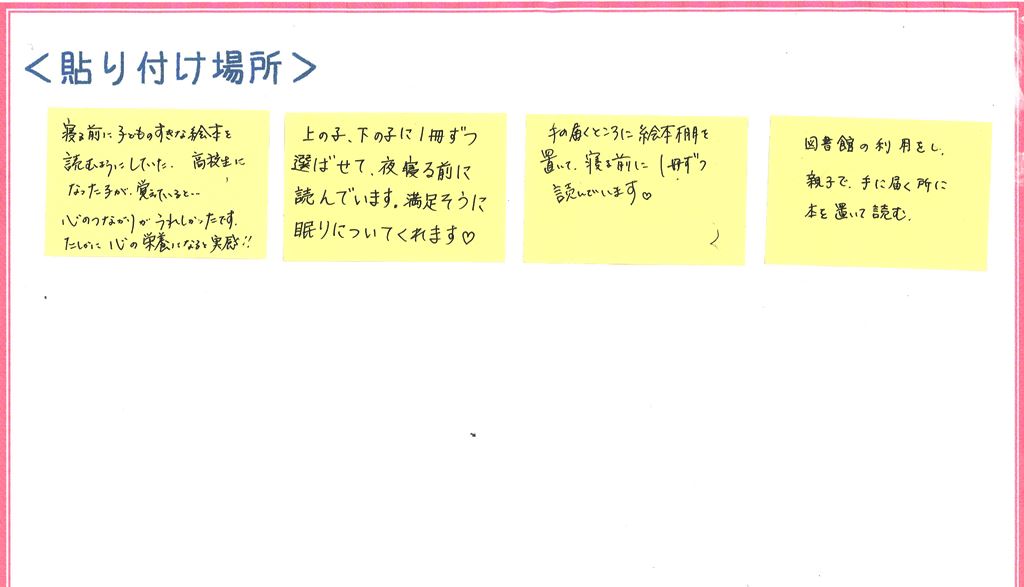 <貼り付け場所>
寝る前に子どものすきな絵本を
読むようにしていた. 高校生に
なった子が、覚えていると..
心のつながりがうれしかったです.
たしかに心の栄養になると実感!!
上の子、下の子に1冊ずつ
選ばせて、夜寝る前に
読んでいます。満足そうに
眠りについてくれます♡
手の届くところに絵本棚を
置いて、寝る前に1冊ずつ
読んでいます♡
図書館の利用をし、
親子で、手に届く所に
本を置いて読む.